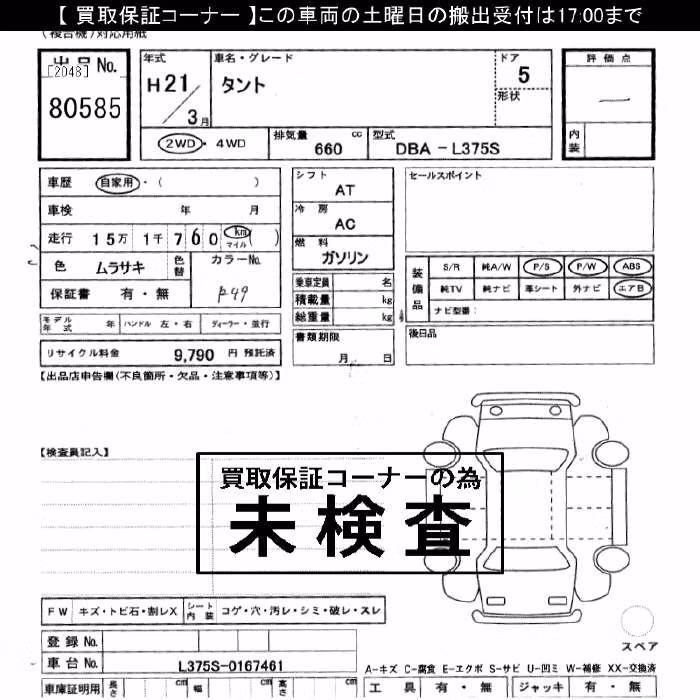 【 買取保証コーナー 】この車両の土曜日の搬出受付は17:00まで
(複合機)対応用紙
出品No.
[2048]
80585
年式
H21/3月
車名・グレード
タント
ドア
5
形状
評価点
一
内装
2WD・4WD
排気量
660 cc
型式
DBA－L375S
車歴 自家用・( )
車検 年 月
走行 15万 1千 760 km マイル ( )
色 ムラサキ 色替 カラーNo.
保証書 有・無 P49
モデル年式 年 ハンドル 左・右 ディーラー・並行
リサイクル料金 9,790 円 預託済
シフト
AT
冷房
AC
燃料
ガソリン
乗車定員 名
積載量 kg
総重量 kg
書類期限
月 日
セールスポイント
装備品
S/R 純A/W P/S P/W ABS
純TV 純ナビ 革シート 外ナビ エアB
ナビ型番:
後日品
【出品店申告欄(不良箇所・欠品・注意事項等)】
【検査員記入】
買取保証コーナーの為
未検査
FW キズ・トビ石・割レX シート内装 コゲ・穴・汚レ・シミ・破レ・スレ
スペア
登録No.
車台No. L375S-0167461
A-キズ C-腐食 E-エクボ S-サビ U-凹ミ W-補修 XX-交換済
車庫証明用 長さ cm 幅 cm 高さ cm
工具 有・無 ジャッキ 有・無